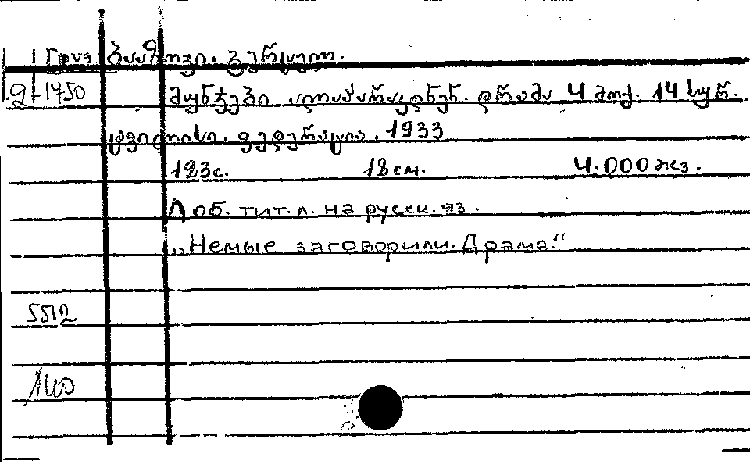 Груз ბააზოვი. გერცელ.
9-1750 მუნჯები ალაპარაკდნენ. დრამა 4 მოქ. 14 სურ.
ტფილისი. ფედერაცია. 1933
123с. 18 см. 4.000 экз.
Доб. тит. л. на русск. яз.
„Немые заговорили. Драма."
5512